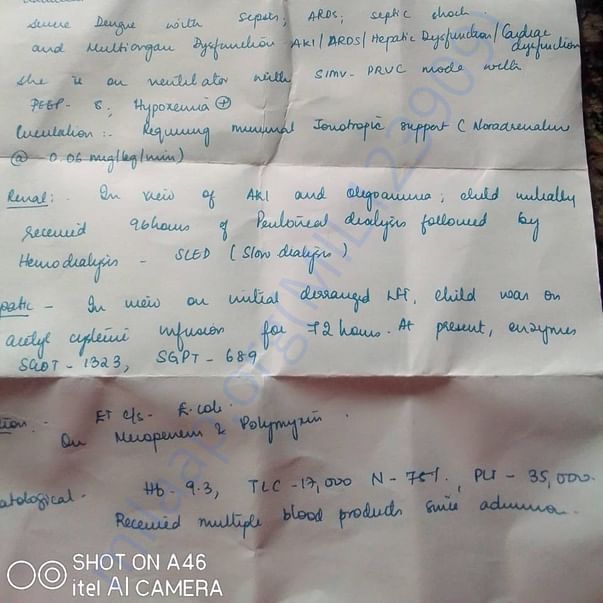 severe Dengue with sepsis; ARDS; septic shock
and Multiorgan Dysfunction - AKI/ARDS/Hepatic Dysfunction/Cardiac dysfunction
she is on ventilator with SIMV - PRVC mode with
PEEP - 8; Hypoxemia +
Circulation :- Requiring minimal Ionotropic support (Noradrenaline
@ 0.06 mg/kg/min)
Renal: In view of AKI and Oligoanuria; child initially
received 96 hours of Peritoneal dialysis followed by
Hemodialysis - SLED (Slow dialysis)
patic - In view on initial deranged LFT, child was on
acetyl cysteine infusion for 72 hours. At present, enzymes
SGOT - 1323, SGPT - 689
tion. - ET c/s - E. coli.
On Meropenem & Polymyxin.
atological - Hb - 9.3, TLC - 17,000 N - 75%, PLT - 35,000.
Received multiple blood products since admission.
milaap.org
SHOT ON A46
itel AI CAMERA